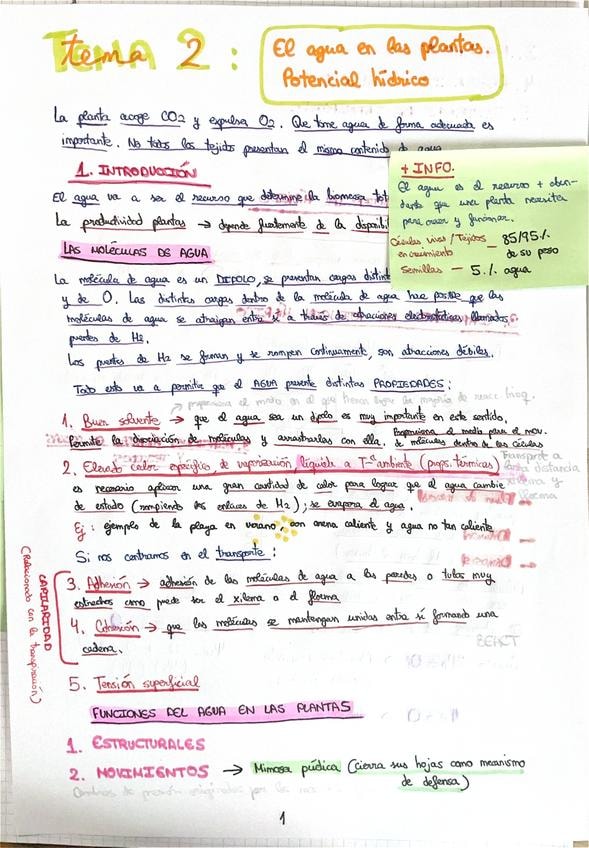 Tema 2:
El agua en las plantas.
Potencial hídrico
La planta acoge CO2 y expulsa O2. Que tome agua de forma adecuada es
importante. No todos los tejidos presentan el mismo contenido de agua
1. INTRODUCCIÓN
El agua va a ser el recurso que determine la biomasa tot
La productividad plantas → depende fuertemente de la disponibil
+ INFO.
El agua es el recurso + abun-
dante que una planta necesita
para crecer y funcionar.
Células vivas / Tejidos en crecimiento — 85/95% de su peso
Semillas — 5% agua
LAS MOLÉCULAS DE AGUA
La molécula de agua es un DIPOLO, se presentan cargas distint
y de O. Las distintas cargas dentro de la molécula de agua hace posible que las
moléculas de agua se atraigan entre sí a través de atracciones electrostáticas llamados
puentes de H2.
Los puentes de H2 se forman y se rompen continuamente, son atracciones débiles.
Todo esto va a permitir que el AGUA presente distintas PROPIEDADES:
→ proporciona el medio en el que tienen lugar la mayoría de reacc. bioq.
1. Buen solvente → que el agua sea un dipolo es muy importante en este sentido,
permite la disociación de moléculas y arrastrarlas con ella. Proporciona el medio para el mov.
de moléculas dentro de las células
Transport a
larga distancia
xilema y
floema
2. Elevado calor específico de vaporización, líquida a Tª ambiente (props. térmicas)
es necesario aplicar una gran cantidad de calor para lograr que el agua cambie
de estado (rompiendo los enlaces de H2); se evapora el agua.
Ej: ejemplo de la playa en verano, con arena caliente y agua no tan caliente
Si nos centramos en el transporte:
CAPILARIDAD
(Relacionado con la transpiración)
3. Adhesión → adhesión de las moléculas de agua a las paredes o tubos muy
estrechos como puede ser el xilema o el floema
4. Cohesión → que las moléculas se mantengan unidas entre sí formando una
cadena.
5. Tensión superficial
FUNCIONES DEL AGUA EN LAS PLANTAS
1. ESTRUCTURALES
2. MOVIMIENTOS → Mimosa púdica (cierra sus hojas como mecanismo
de defensa)
Cambios de presión originados por
1